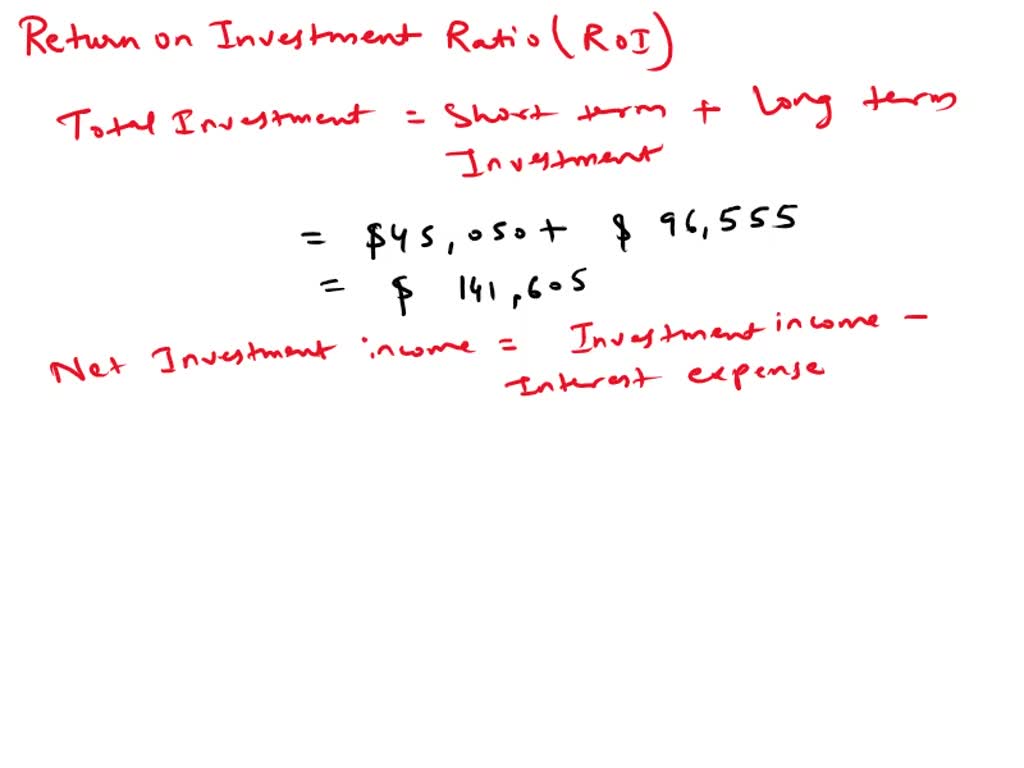 Return on Investment Ratio (ROI)
Total Investment = Short term + Long term
Investment
= $45,050 + $ 96,555
= $ 141,605
Net Investment income = Investment income -
Interest expense